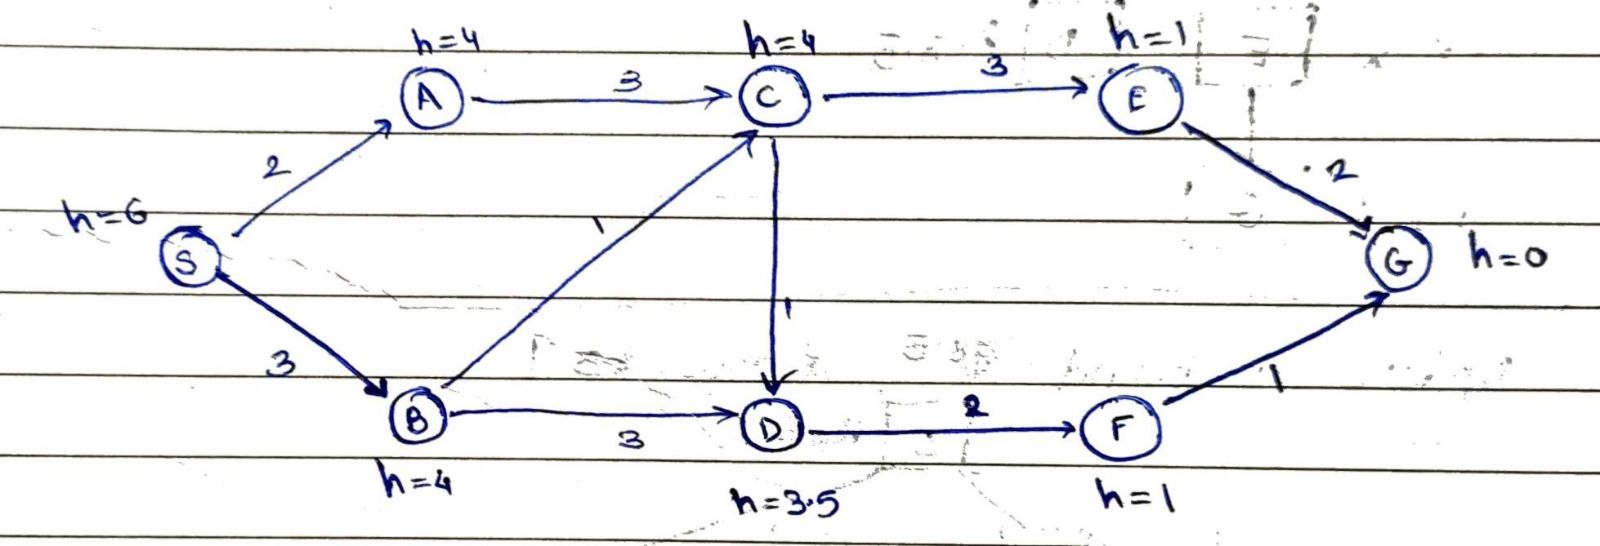 h=4 h=4 h=1
A 3 C 3 E
2 2
h=6
S 1 G h=0
1
3 1
B 3 D 2 F
h=4 h=3.5 h=1